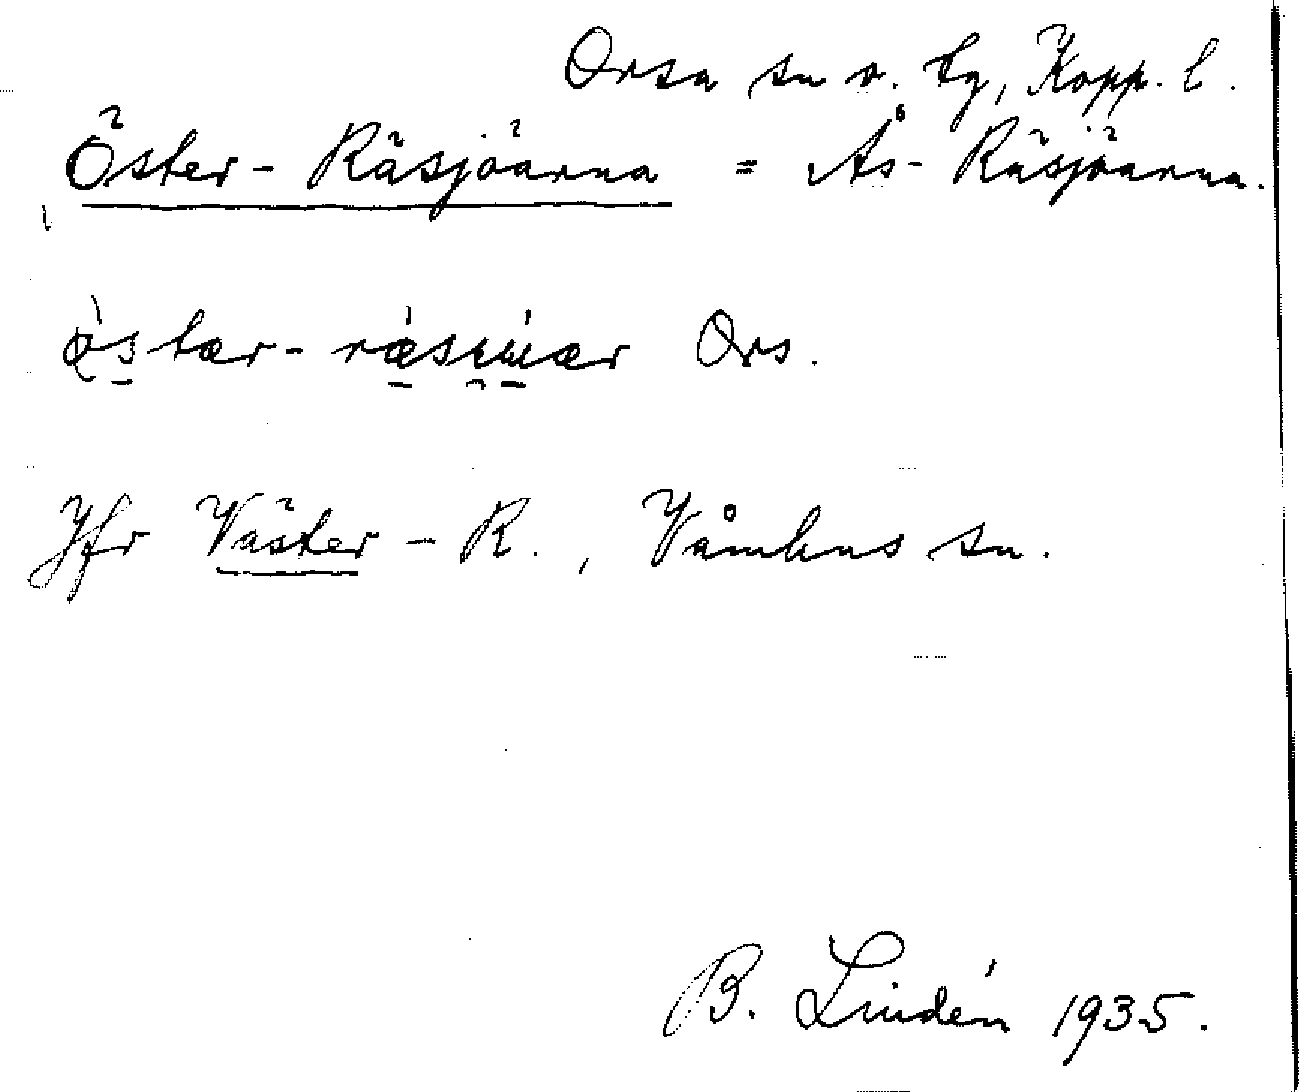 Orsa sn o. tg, Kopp. l.
Öster-Räsjöarna = Ås-Räsjöarna.
Ors.
Jfr Väster-R., Våmhus sn.
B. Lindén 1935.